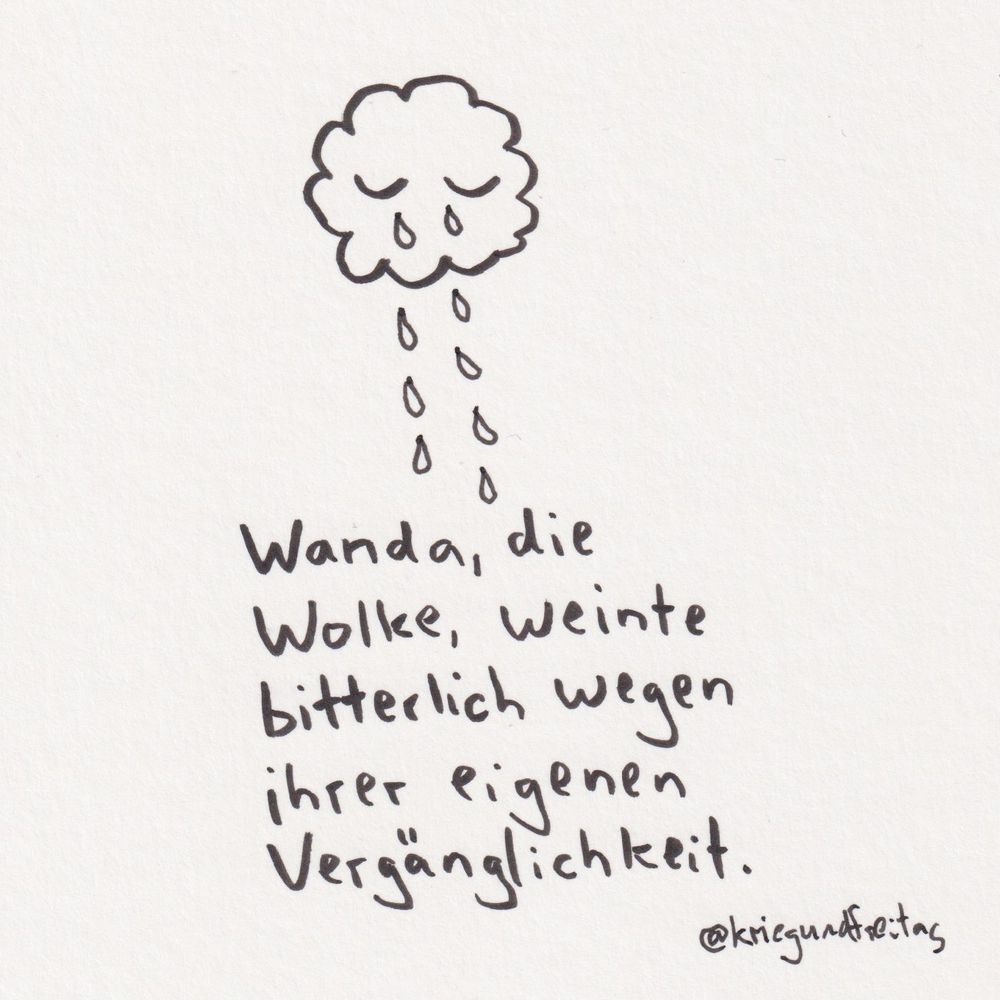 Wanda, die
Wolke, weinte
bitterlich wegen
ihrer eigenen
Vergänglichkeit.
@kriegundfreitag